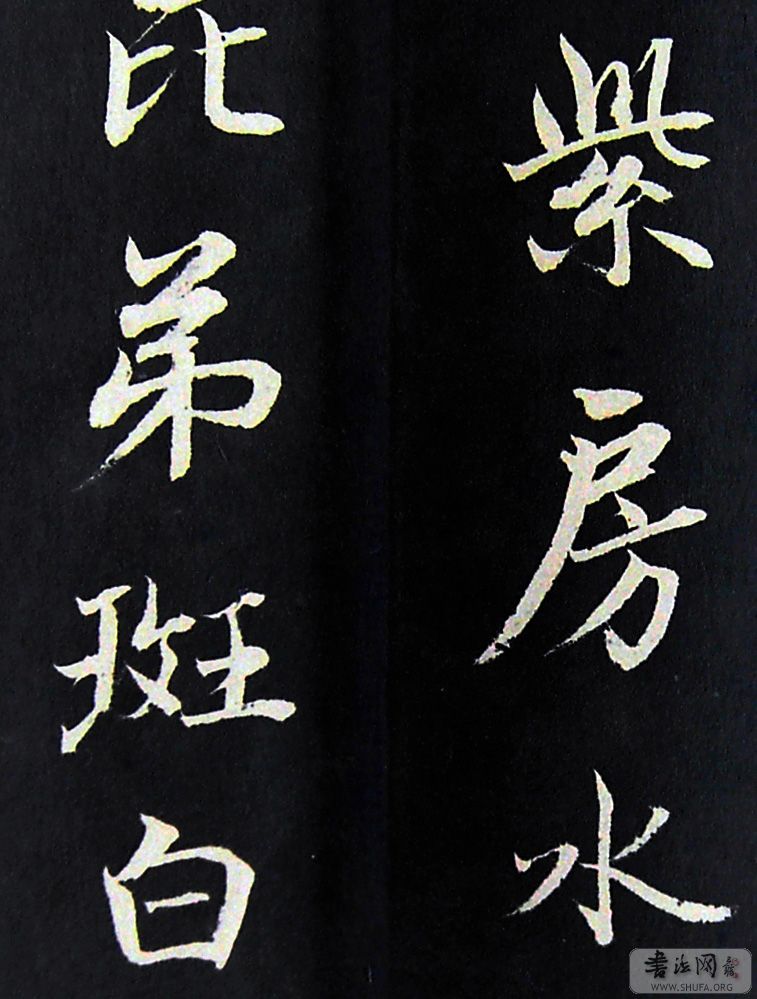 紫房水
昆弟斑白
书法网
WWW.SHUFA.ORG